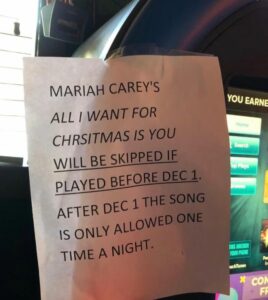 MARIAH CAREY'S
ALL I WANT FOR
CHRSITMAS IS YOU
WILL BE SKIPPED IF
PLAYED BEFORE DEC 1.
AFTER DEC 1 THE SONG
IS ONLY ALLOWED ONE
TIME A NIGHT.
YOU EARNE
Search